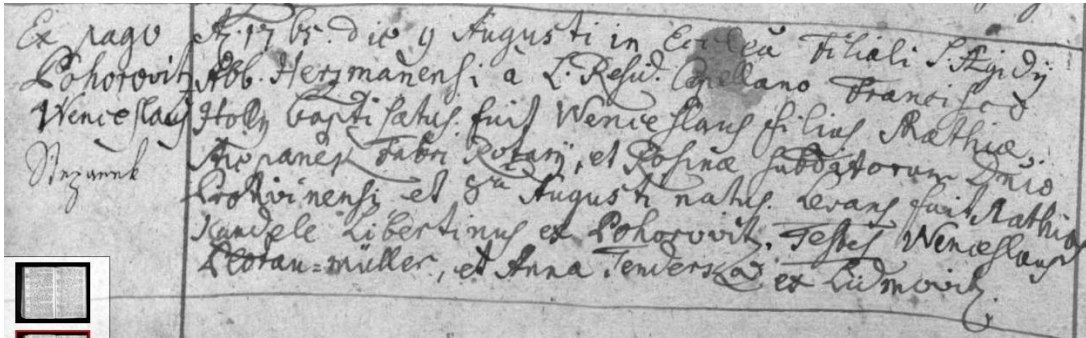 Ex pago
Pohorovitz
Wenceslaus
Stepanek
A: 1765. die 9 Augusti in Ecclea Filiali S. Ægidij
Abb. Herzmanensi a L. Resid. Capellano Francisco
Holly baptisatus fuit Wenceslaus filius Mathiæ
Fabri Rotarij, et Rosinæ subditorum Dnio
Protivinensi et 8va Augusti natus. Levans fuit Mathias
Kandele Libertinus ex Pohorovitz. Testes Wenceslaus
müller, et Anna ex Ludmovitz.